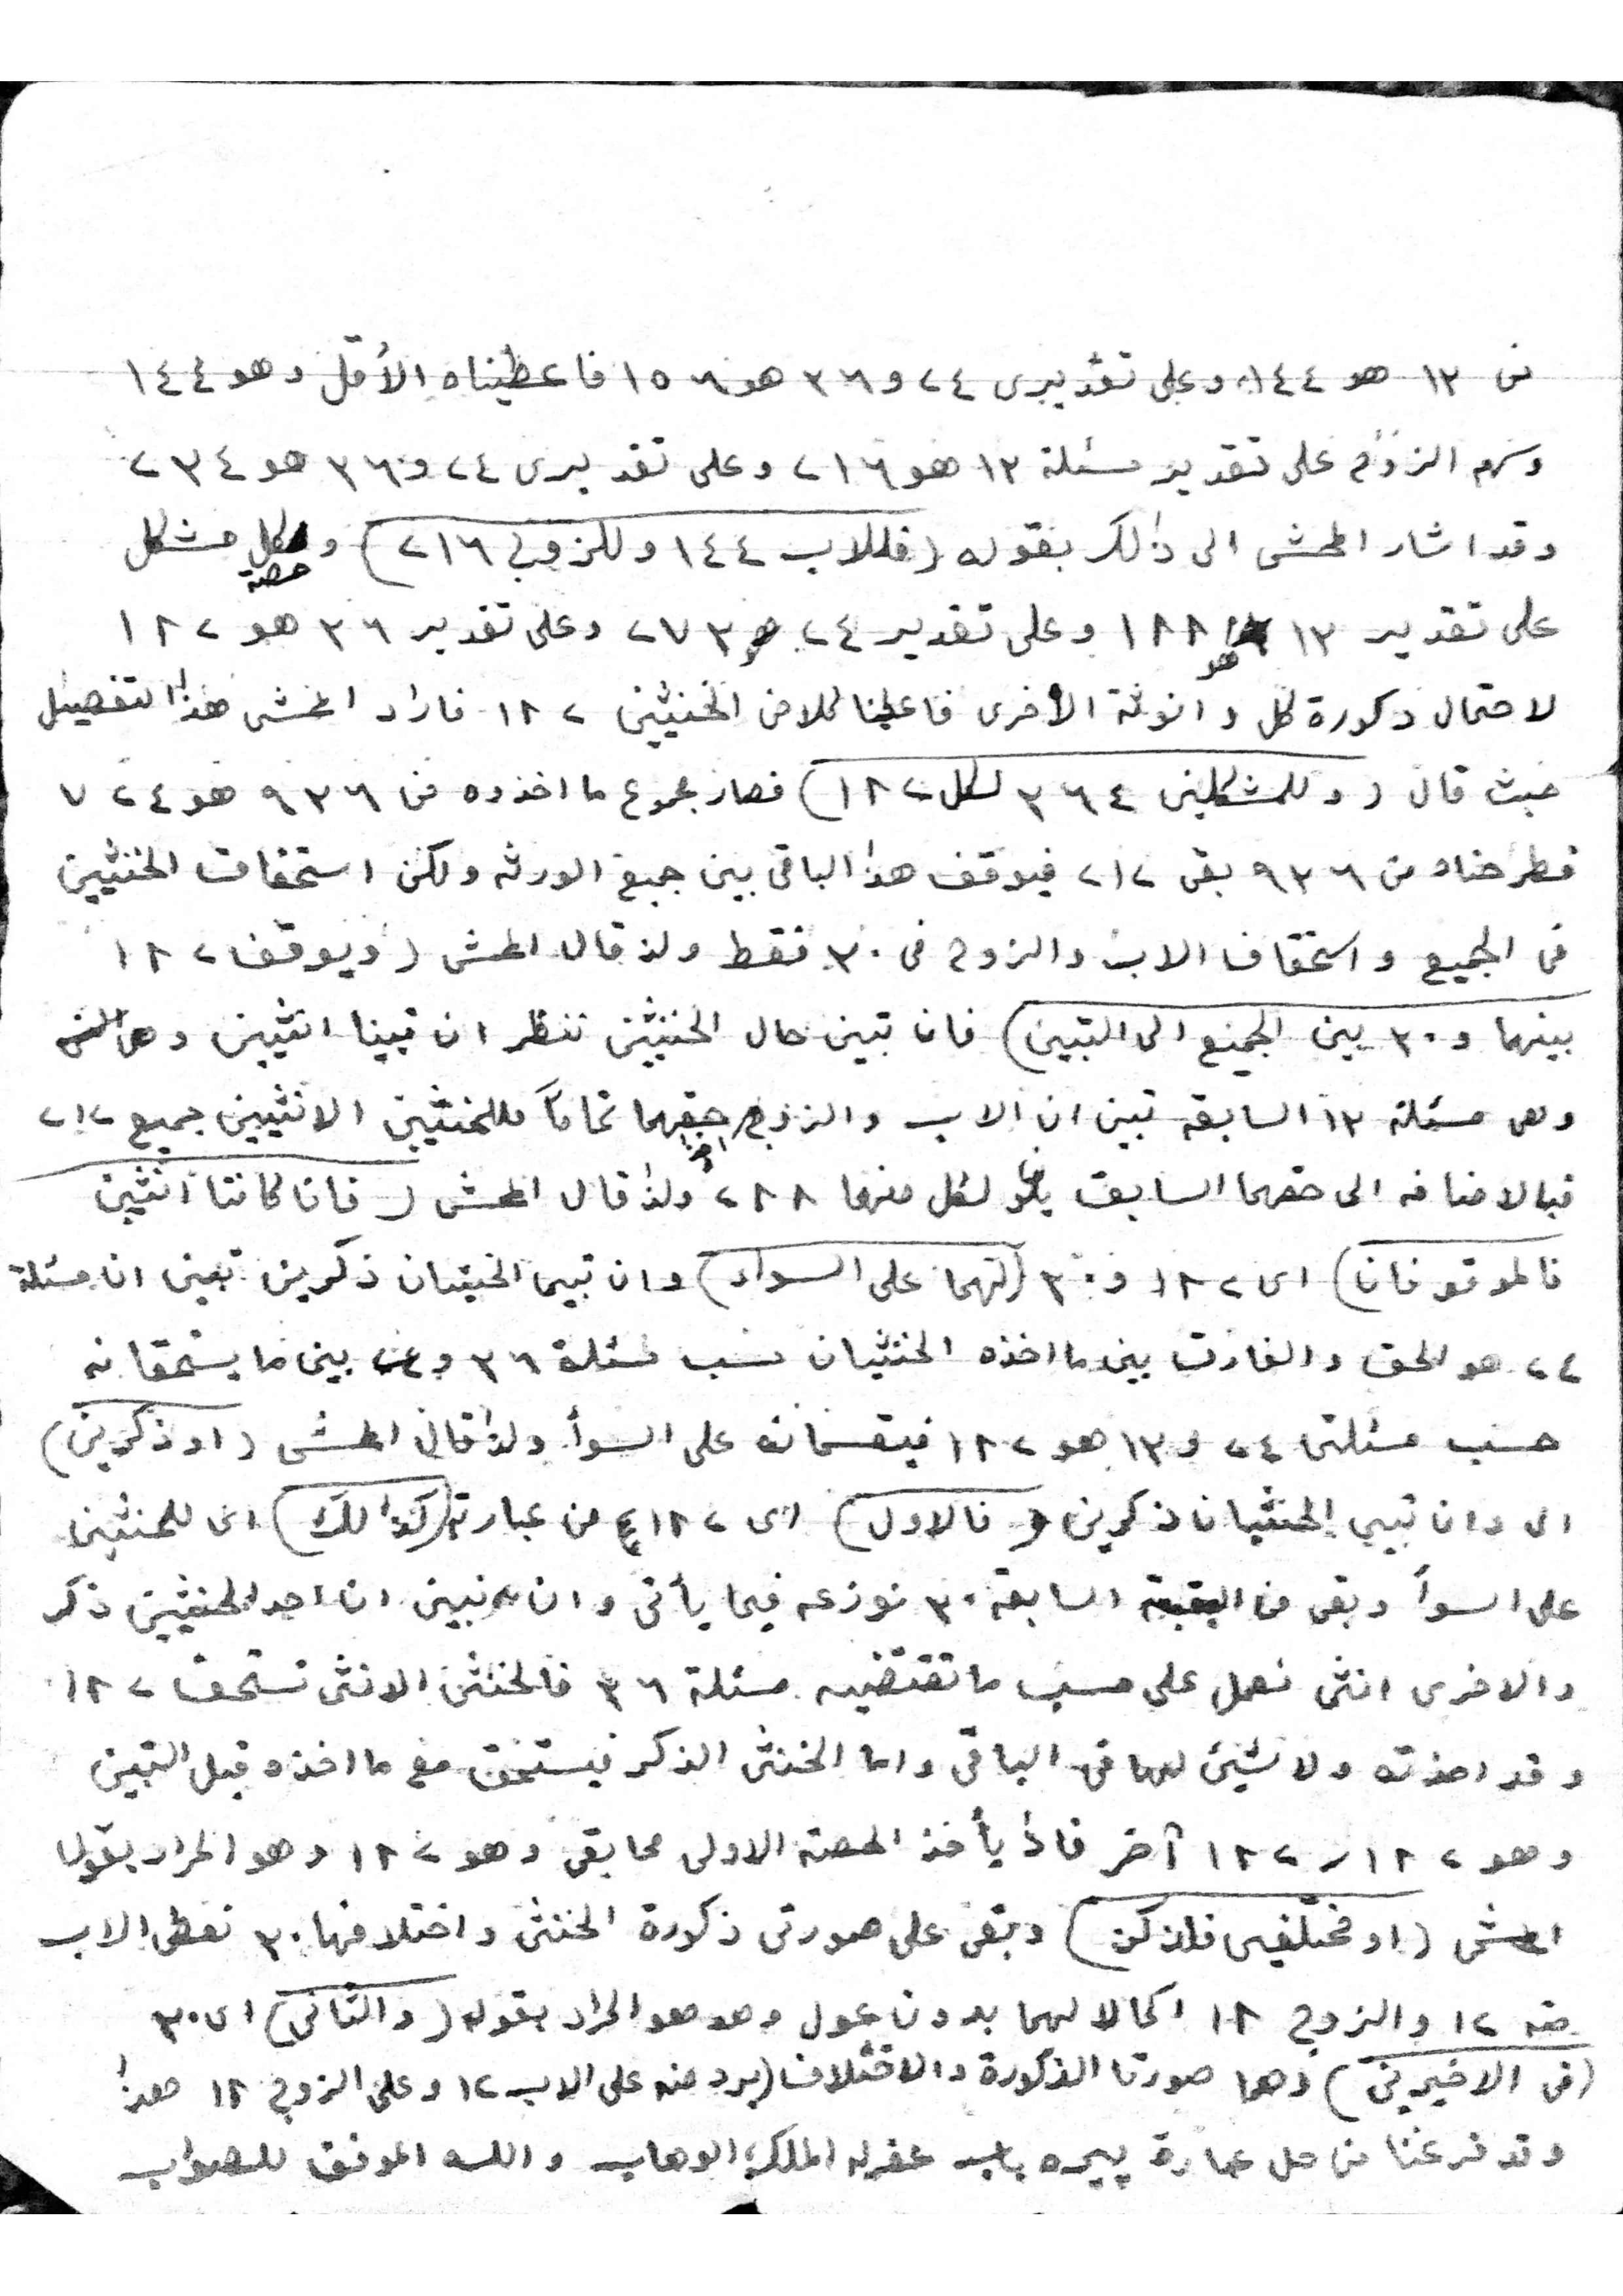 من ١٣ هو ١٤٤ وعلى تقديرى ٢٤ و ٣٦ هو ١٥٦ فاعطيناه الأقل وهو ١٤٤
وسهم الزوج على تقدير مسئلة ١٣ هو ٢١٦ وعلى تقديرى ٢٤ و ٣٦ هو ٢٣٤
وقد اشار المحشى الى ذالك بقوله (فللاب ١٤٤ وللزوج ٢١٦) وحصة كل مشكل
على تقدير ١٣ هو ٢٨٨ وعلى تقدير ٢٤ هو ٢٧٣ وعلى تقدير ٣٦ هو ١٨٢
لاحتمال ذكورة كل وانوثة الأخرى فاعطينا كلا من الخنثيين ١٨٢ فاراد المحشى هذا التفصيل
حيث قال (وللمشكلين ٣٦٤ لكل ١٨٢) فصار مجموع ما اخذوه من ٩٣٦ هو ٧٢٤
فطرحناه من ٩٣٦ بقى ٢١٢ فيوقف هذا الباقى بين جميع الورثه ولكن استحقاق الخنثيين
فى الجميع واستحقاق الاب والزوج فى ٣٠ فقط ولذ قال المحشى (ويوقف ١٨٢
بينهما و ٣٠ بين الجميع الى التبين) فان تبين حال الخنثيين ننظر ان تبينا انثيين
وهى مسئلة ١٣ السابقه تبين ان الاب والزوج اخذا حقهما تماماً فللخنثيين الانثيين جميع ٢١٢
فبالاضافه الى حقهما السابق لكل منهما ٢٨٨ ولذا قال المحشى (فان كانتا انثيين
فالموقوفان) اى ١٨٢ و ٣٠ (لهما على السواء) وان تبين الخنثيان ذكرين تبين ان مسئلة
٢٤ هو الحق والفارق بين ما اخذه الخنثيان حسب مسئلة ٣٦ و بين ما يستحقانه
حسب مسئلتى ٢٤ و ١٣ هو ١٨٢ فيقتسمانه على السوأ ولذا قال المحشى (او ذكرين)
اى وان تبين الخنثيان ذكرين (فالاول) اى ١٨٢ من عبارته (كذالك) اى للخنثيين
على السوأ وبقى من البقية السابقة ٣٠ نوزعه فيما يأتى وان تبين ان احد الخنثيين ذكر
والاخرى انثى نعمل على حسب ما تقتضيه مسئلة ٣٦ فالخنثى الانثى تستحق ١٨٢
وقد اخذته ولا شيئ لها فى الباقى واما الخنثى الذكر فيستحق مع ما اخذه قبل التبين
وهو ١٨٢ ، ١٨٢ آخر فاذا يأخذ الحصة الاولى مما بقى وهو ١٨٢ وهو المراد بقول
المحشى (او مختلفين فللذكر) وبقى على صورتى ذكورة الخنثى واختلافها ٣٠ نعطى الاب
منه ١٢ والزوج ١٨ اكمالا لهما بدون عول وهو هو المراد بقوله (والثانى) اى ٣٠
(فى الاخيرين) وهما صورتا الذكورة والاختلاف (يرد منه على الاب ١٢ وعلى الزوج ١٨ هذا
وقد فرغنا من حل عبارة پیره باب غفرله الملك الوهاب والله الموفق للصواب